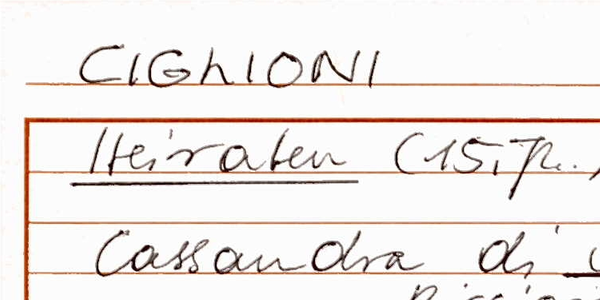 CIGHIONI
Heiraten (15.
Cassandra di